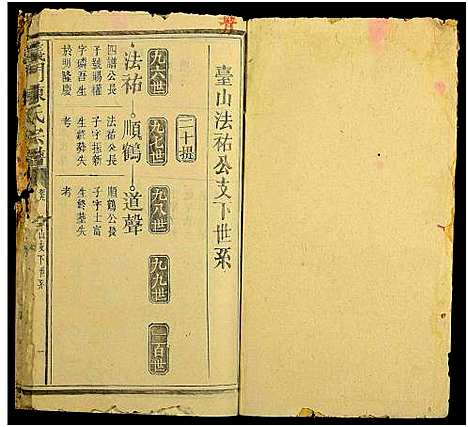 臺山法祐公支下世系
三十提
九六世
九七世
九八世
九九世
一百世
法祐
順鶴
道聲
四譜公長
子號賜權
字磷吾生
於明隆慶
法祐公長
子字振新
生終葬失
考
順鶴公長
子字士畜
生終墓失
考
義門陳氏宗譜
山支下世系